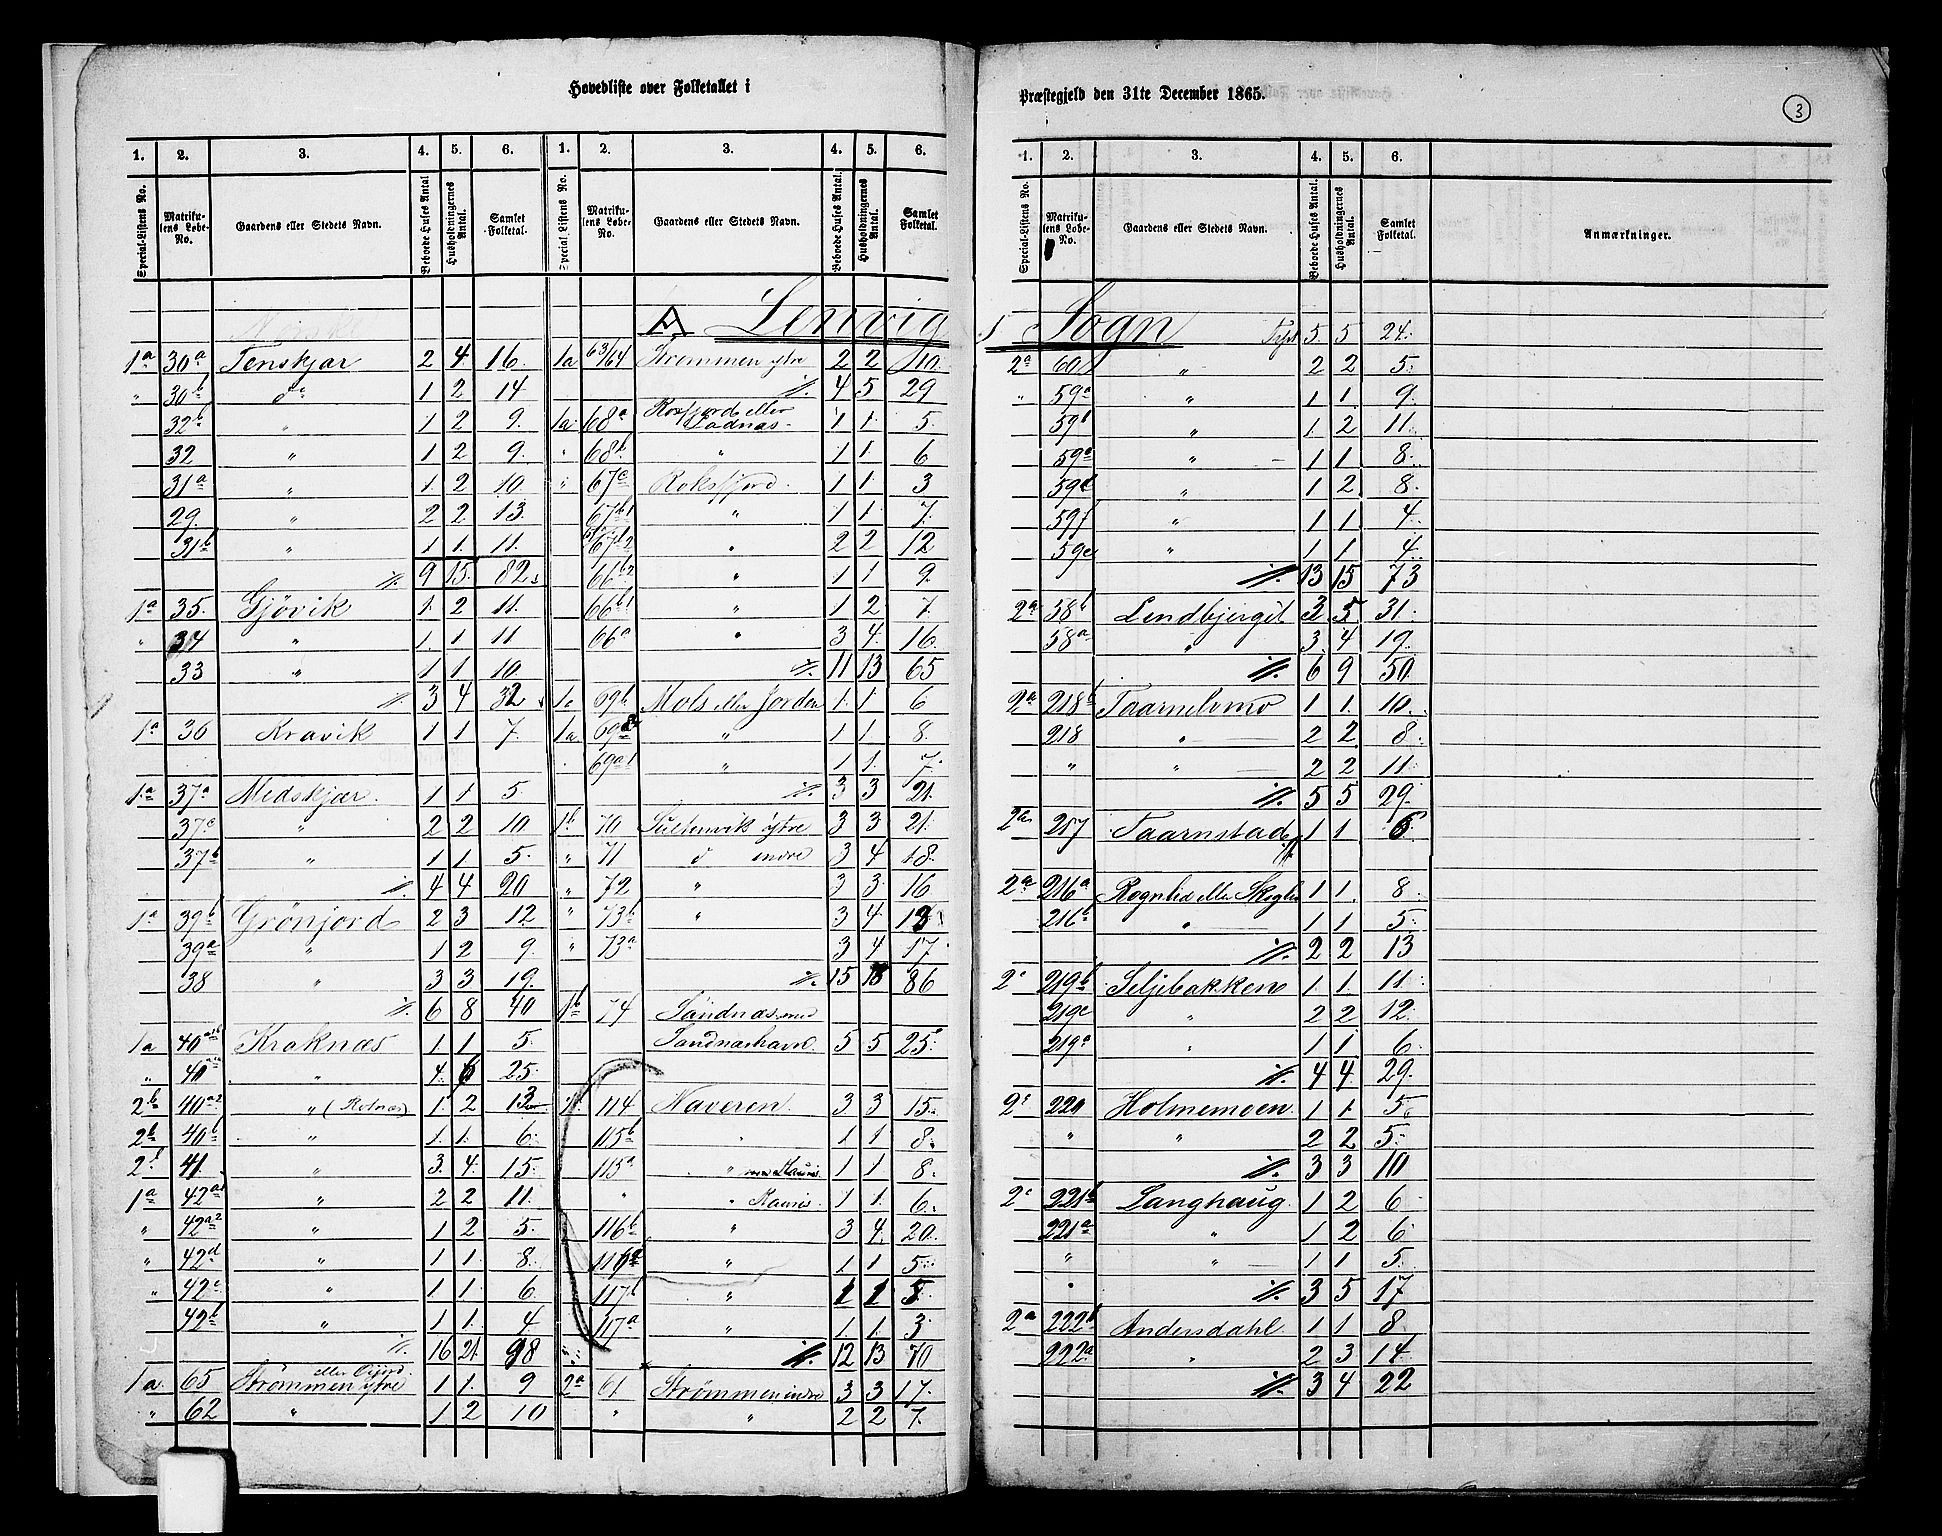 Hovedliste over Folketallet i
1. 2. 3. 4. 5. 6. 1. 2. 3. 4. 5. 6.
Special-Listens No. Matrikulens Løbe-No. Gaardens eller Stedets Navn. Beboede Huses Antal Husholdningernes Antal. Samlet Folketal. Special-Listens No. Matrikulens Løbe-No. Gaardens eller Stedets Navn. Beboede Huses Antal. Husholdningernes Antal. Samlet Folketal.
A Lenvig
1a 30a Tenskjær 2 4 16. 1a 63/64 Strømmen ytre 2 2 10.
" 30b do 1 2 14. //. 4 5 29
32b " 1 2 9. 1a 68a Rossfjord eller Sodnæs. 1 1 5.
32 " 1 2 9. " 68b " 1 1 6
31a " 1 2 10. " 67c Roksfjord. 1 1 3
29. " 2 2 13. 67b1 " 1 1 7.
31b " 1 1 11. 67b2 " 2 2 12
//. 9 15. 82 66b2 " 1 1 9.
1a 35. Gjövik 1 2 11. 66b1 " 1 2 7.
" 34 " 1 1 11 66a " 3 4 16.
33 " 1 1 10. //. 11 13 65
//. 3 4 32 1a 69b Mols eller Jorden 1 1 6
1a 36 Kravik 1 1 7. 1a 69a2 " 1 1 8.
69a1 " 1 1 7.
1a 37a Medskjær. 1 1 5. //. 3 3 21.
37c " 2 2 10 1b 70 Sultenvik ytre 3 3 21.
37b " 1 1 5. " 71 d indre 3 4 18.
//. 4 4 20 " 72 " 3 3 16
1a 39b Grönjord 2 3 12 " 73b " 3 4 13
39a " 1 2 9. " 73a 3 4 17
38 " 3 3 19. //. 15 18 86
//. 6 8 40 1b 74 Sandnæs med
1a 40a1b Kraknæs 1 1 5. Sandnæshavn. 5 5 25.
" 40a1a " 4 6 25.
2b 40a2 " (Rolnæs) 1 2 13 114 Naveren. 3 3 15.
2b 40b " 1 1 6. 115b " 1 1 8.
2b 41. " 3 4 15. 115a " med Kaunis. 1 1 8.
1a 42a1 " 2 2 11. " " Kaunis. 1 1 6.
" 42a2 " 1 2 5. 116b " 3 4 20.
" 42d " 1 1 8. 116a " 1 1 5.
" 42c " 1 1 6. 117b " 1 1 5.
42b " 1 1 4 117a " 1 1 3
//. 16 21. 98 //. 12 13 70
1a 65 Strømmen ytre 1 1 9 2a 61. Strømmen indre 3 3 17.
" 62 " 1 2 10 " " 2 2 7.
Præstegjeld den 31te December 1865.
3
1. 2. 3. 4. 5. 6.
Special-Listens No. Matrikulens Løbe-No. Gaardens eller Stedets Navn. Beboede Huses Antal. Husholdningernes Antal. Samlet Folketal. Anmærkninger.
s Sogn 5. 5 24.
2a 60 " 2 2 5.
" 59a " 1 1 9.
59b " 1 2 11.
59c " 1 1 8.
59d " 1 2 8.
59f " 1 1 4.
59e " 1 1 4.
//. 13 15 73
2a 58b Lendbjergit 3 5 31.
58a " 3 4 19.
//. 6 9 50.
2a 218b Taarnelvmo 1 1 10.
218 " 2 2 8.
" " 2 2 11.
//. 5 5 29.
2a 217 Taarnstad 1 1 6.
2a 216a Rognlid eller Skoglid 1 1 8.
216b " 1 1 5.
//. 2 2 13
2c 219b Seljebakken 1 1 11.
219c " 2 2 12.
219a " 1 1 6.
//. 4 4 29.
2c 220 Holmemoen. 1 1 5.
" " 2 2 5.
//. 3 3 10
2c 221b Langhaug. 1 2 6.
221a " 1 2 6
" " 1 1 5.
" //. 3 5 17
2a 222b Andersdahl. 1 1 8.
222a " 2 3 14.
//. 3 4 22